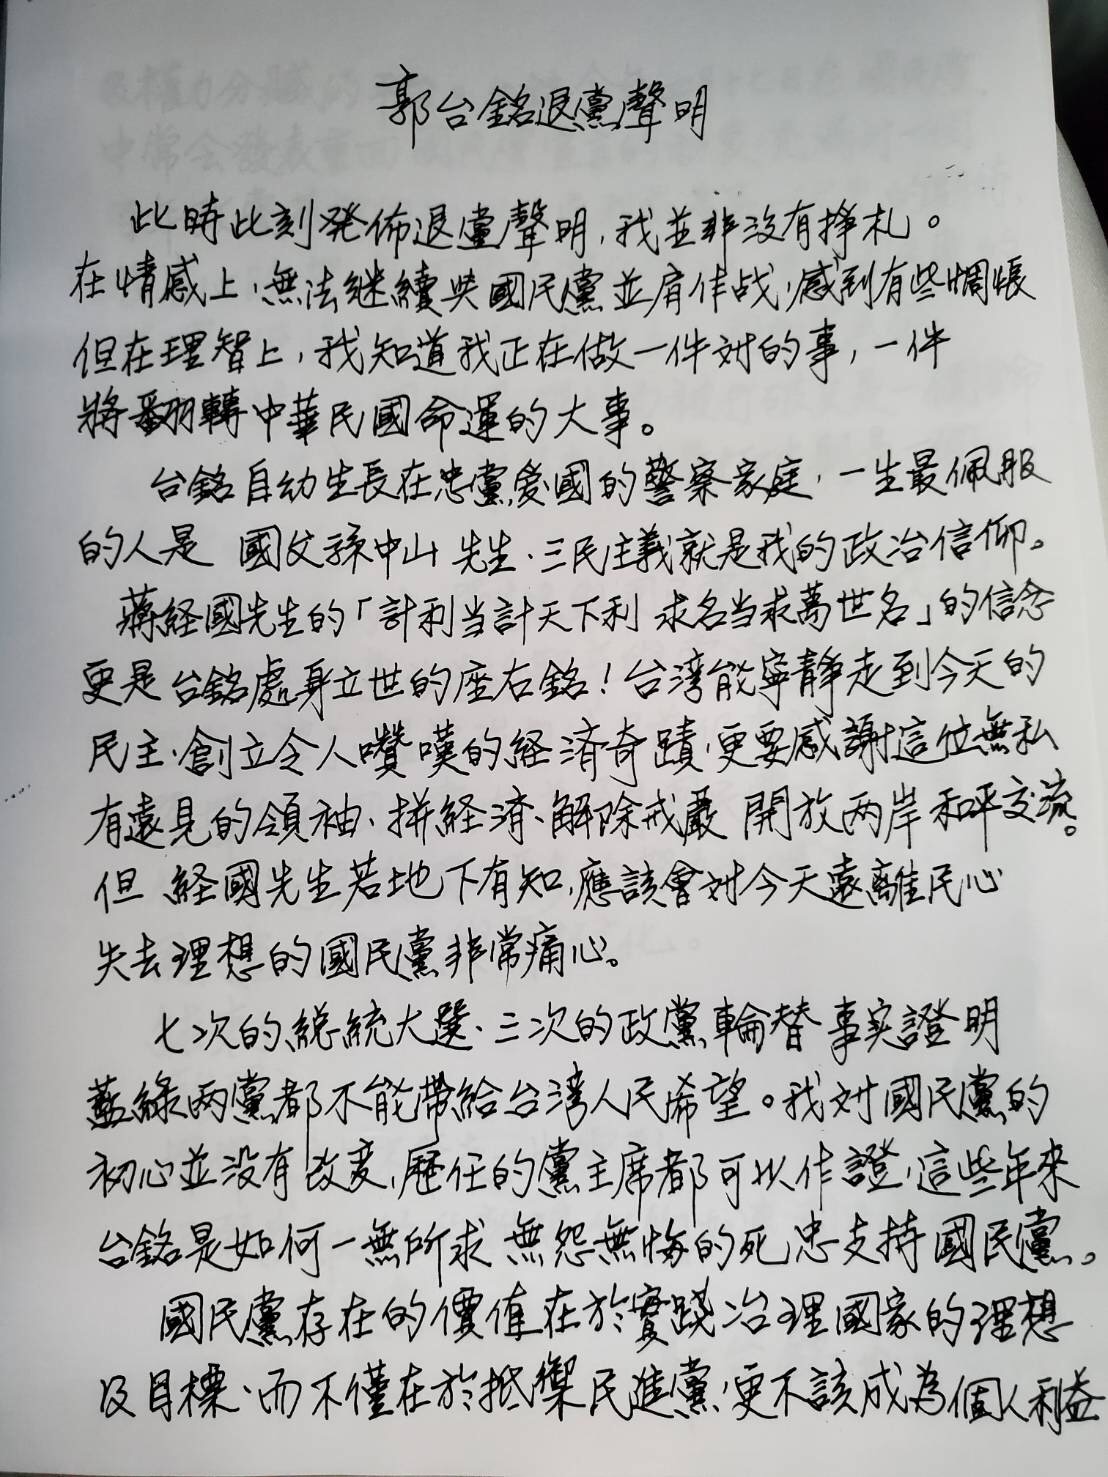 郭台銘退黨聲明
此時此刻発佈退黨聲明,我並非沒有掙札。
在情感上,無法継續與國民黨並肩作战,感到有些惆悵
但在理智上,我知道我正在做一件对的事,一件
將翻轉中華民國命運的大事。
台銘自幼生長在忠黨愛國的警察家庭,一生最佩服
的人是 國父孫中山先生、三民主義就是我的政治信仰。
蔣経國先生的「計利当計天下利 求名当求萬世名」的信念
更是台銘處身立世的座右銘!台湾能寧靜走到今天的
民主、創立令人嘖嘆的経済奇蹟,更要感謝這位無私
有遠見的領袖、拼経済、解除戒嚴 開放两岸和平交流。
但 経國先生若地下有知,應該會对今天遠離民心
失去理想的國民黨非常痛心。
七次的総統大選、三次的政黨輪替 事实證明
藍綠两黨都不能帶給台湾人民希望。我对國民黨的
初心並沒有改変,歷任的黨主席都可以作證,這些年來
台銘是如何一無所求 無怨無悔的死忠支持國民黨。
國民黨存在的價值在於實踐治理國家的理想
及目標、而不僅在於抵禦民進黨,更不該成為個人利益